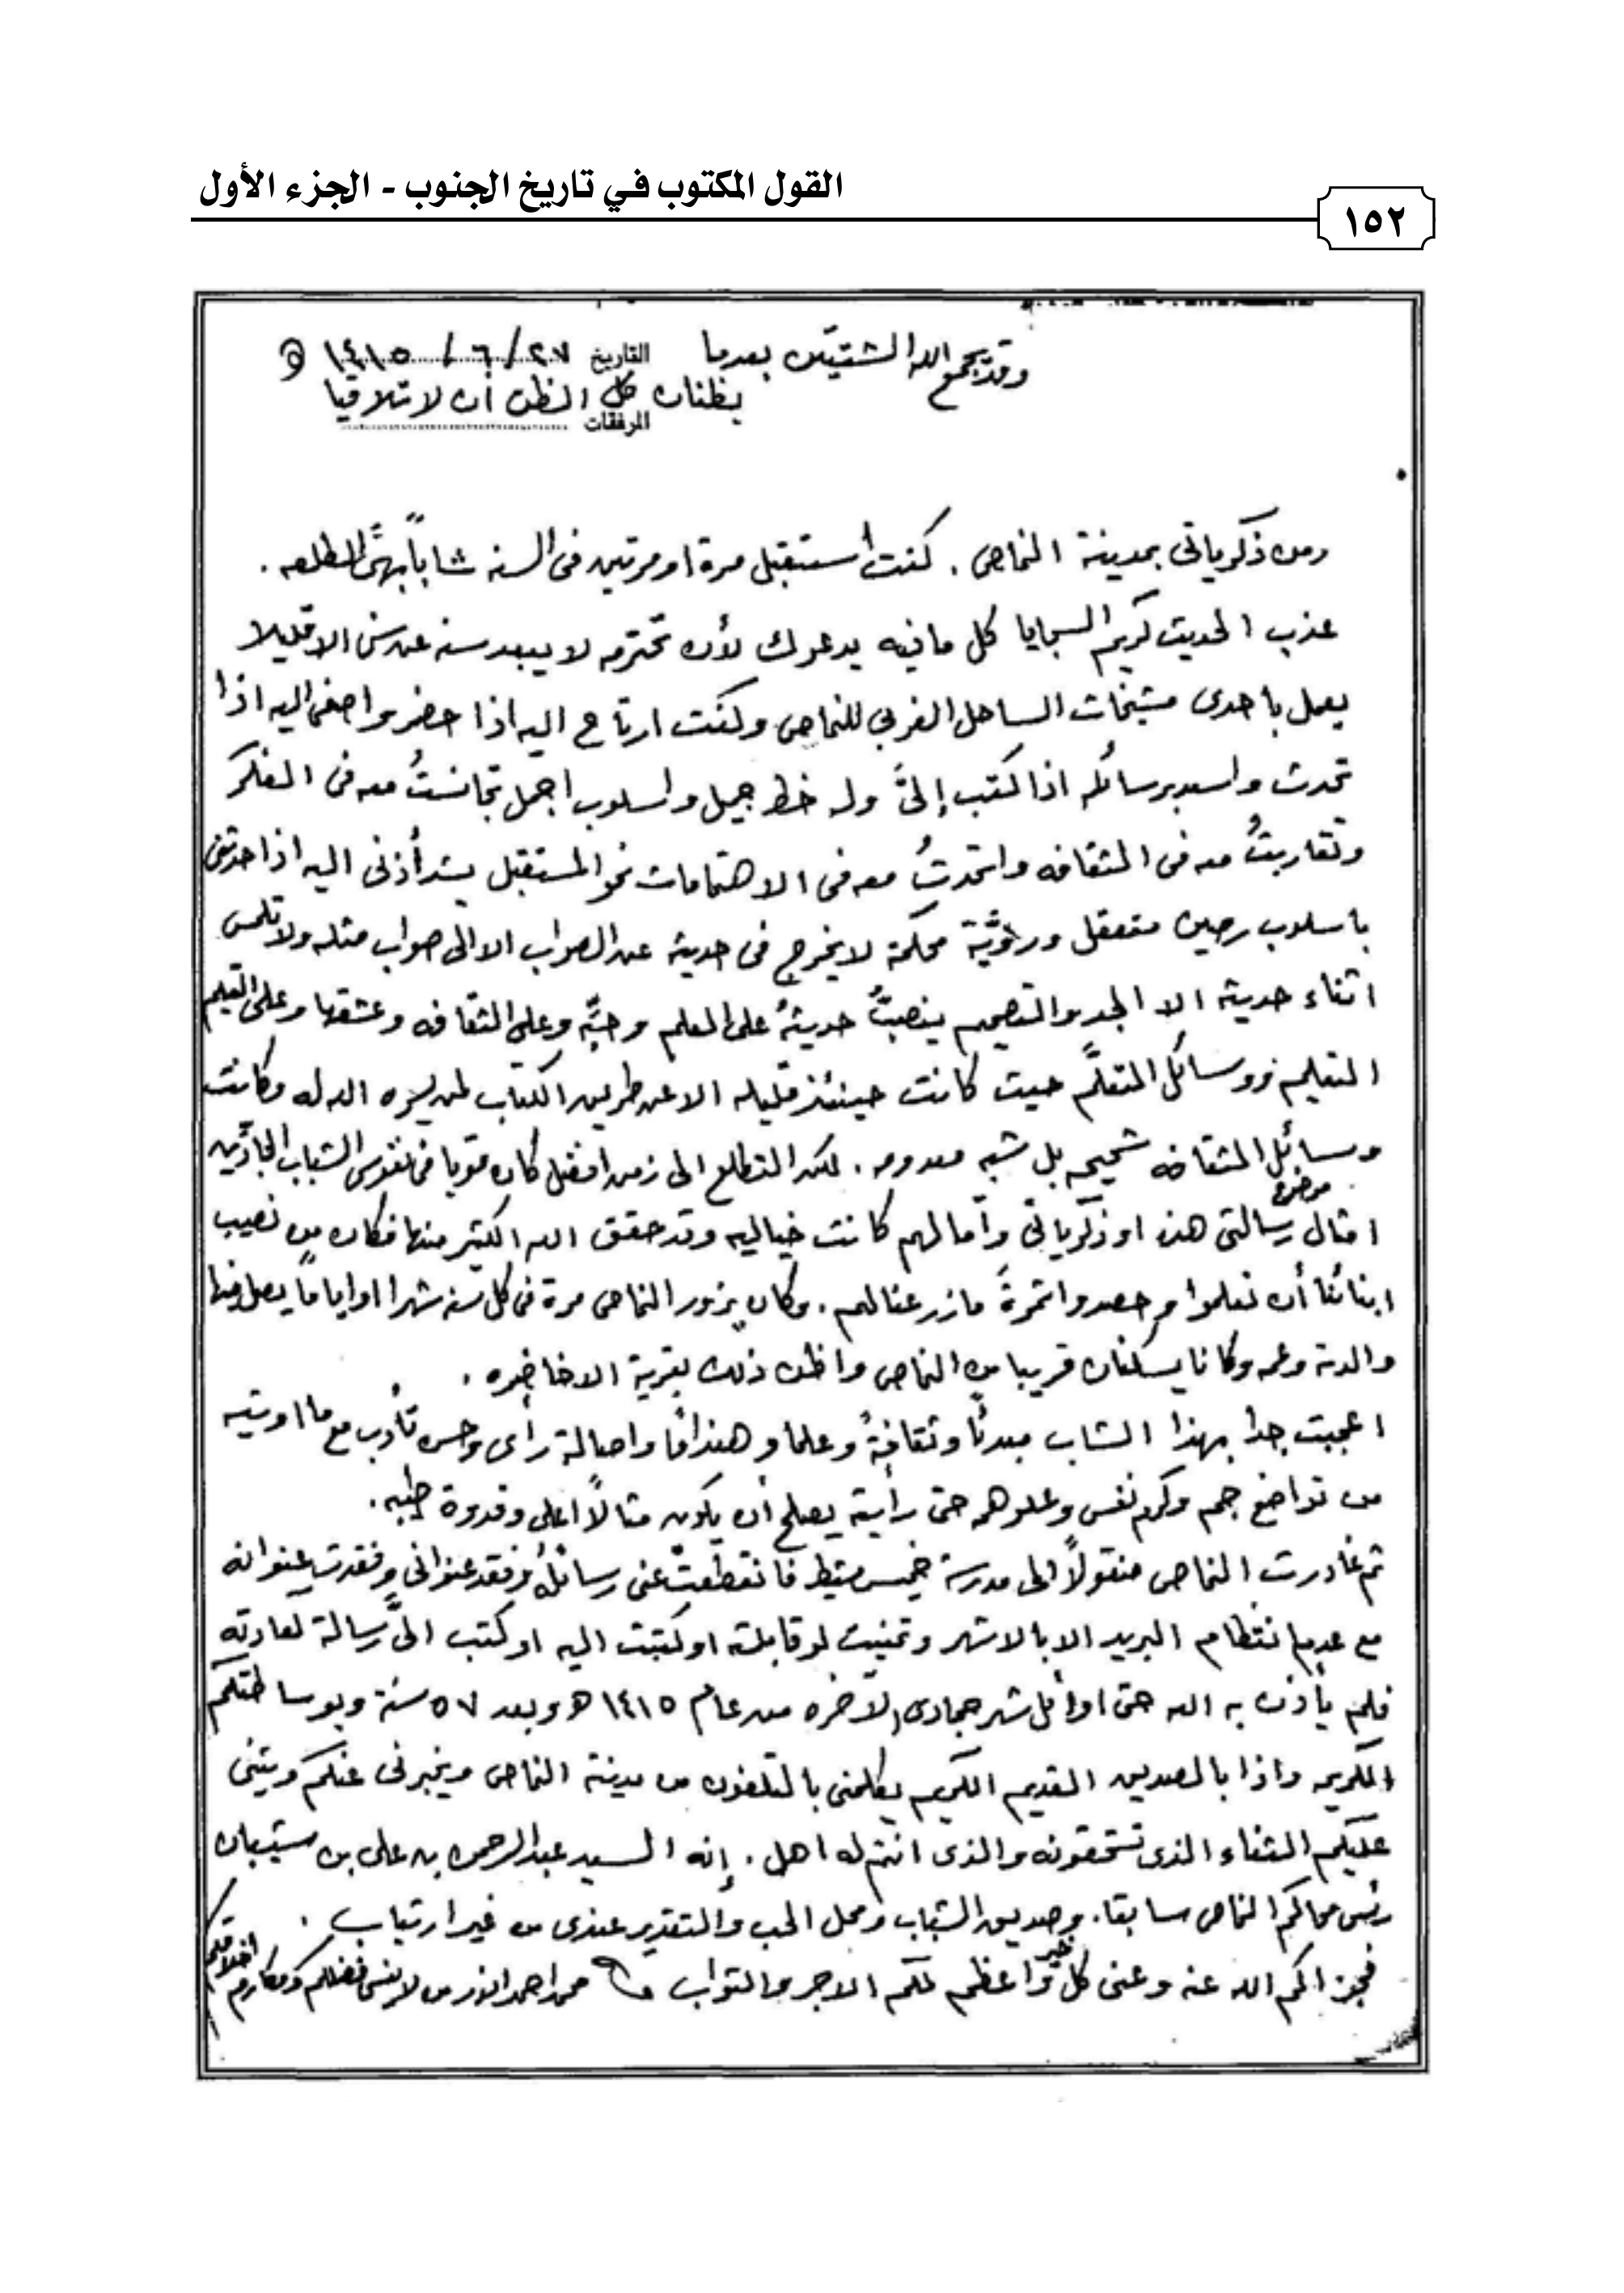 القول المكتوب في تاريخ الجنوب - الجزء الأول
١٥٢
وقد يجمع الله الشتيتين بعدما
التاريخ ٢٧ / ٦ / ١٤١٥ هـ
يظنان كل الظن أن لا تلاقيا
المرفقات
ومن ذكرياتى بمدينة النماص . كنت أستقبل مرة او مرتين فى السنه شاباً بهىَّ الطلعه .
عذب الحديث كريم السجايا كل مافيه يدعوك لأن تحترمه لا يبعد سنه عن سنى الا قليلا
يعمل باحدى مشيخات الساحل الغربي للنماص وكنت ارتاح اليه اذا حضر واصغى اليه اذا
تحدث واسعد برسائله اذا كتب إلىَّ وله خط جميل واسلوب اجمل تجانستُ معه فى الفكر
وتقاربتُ معه فى الثقافه واتحدتُ معه فى الاهتمامات نحو المستقبل يشد أذنى اليه اذا حدثنى
باسلوب رصين متعقل وروَّية محكمة لا يخرج فى حديثه عن الصواب الا الى صواب مثله ولا تلمس
اثناء حديثه الا الجد والتصميم ينصبُّ حديثهُ على العلم وحبِّه وعلى الثقافه وعشقها وعلى التعليم
التعليم ووسائل التعلّم حيث كانت حينئذ قليله الا عن طريق الكتاب لمن يسره الله له وكانت
وسائل الثقافه شحيحه بل شبه معدومه . لكن التطلع الى زمن افضل كان قويا فى نفوس الشباب الجادّين
موضوع
امثال رسالتى هذه او ذكرياتى وآمالهم كانت خياليه وقد حقق الله الكثير منها فكان من نصيب
ابنائنا أن تعلموا وحصدوا ثمرةَ مازرعنا لهم . وكان يزور النماص مرة فى كل سنه شهرا او اياماً يصل فيها
والدته وعمه وكانا يسكنان قريبا من النماص واظن ذلك بقرية الاخاضره .
اعجبت جداً بهذا الشاب مبدئا وثقافةً وعلما وهنداماً واصالة رأى وحسن تأدب مع ما اوتيه
من تواضع جم وكرم نفس وعلو همه حتى رأيته يصلح أن يكون مثالاً اعلى وقدوة طيبه .
ثم غادرت النماص منقولاً الى مدرسة خميس مشيط فانقطعت عنى رسائلهُ وفقد عنوانى وفقدت عنوانه
مع عدم انتظام البريد الا بالاشهر وتمنيت لو قابلته او كتبت اليه او كتب الىَّ رسالة لعادته
فلم يأذن به الله حتى اوائل شهر جمادى الآخره من عام ١٤١٥ هـ وبعد ٥٧ سنة وبوساطتكم
الكريمه واذا بالصديق القديم الكريم يكلمنى بالتلفون من مدينة النماص ويخبرنى عنكم ويثنى
عليكم الثناء الذى تستحقونه والذى انتم له اهل . إنه السيد عبدالرحمن بن على بن شيبان
رئيس محاكم النماص سابقا . وصديق الشباب ومحل الحب والتقدير عندى من غير ارتياب .
فجزاكم الله عنه وعنى كل خير واعظم لكم الاجر والثواب محمد احمد انور من لا ينسى فضلكم ومكارم اخلاقكم